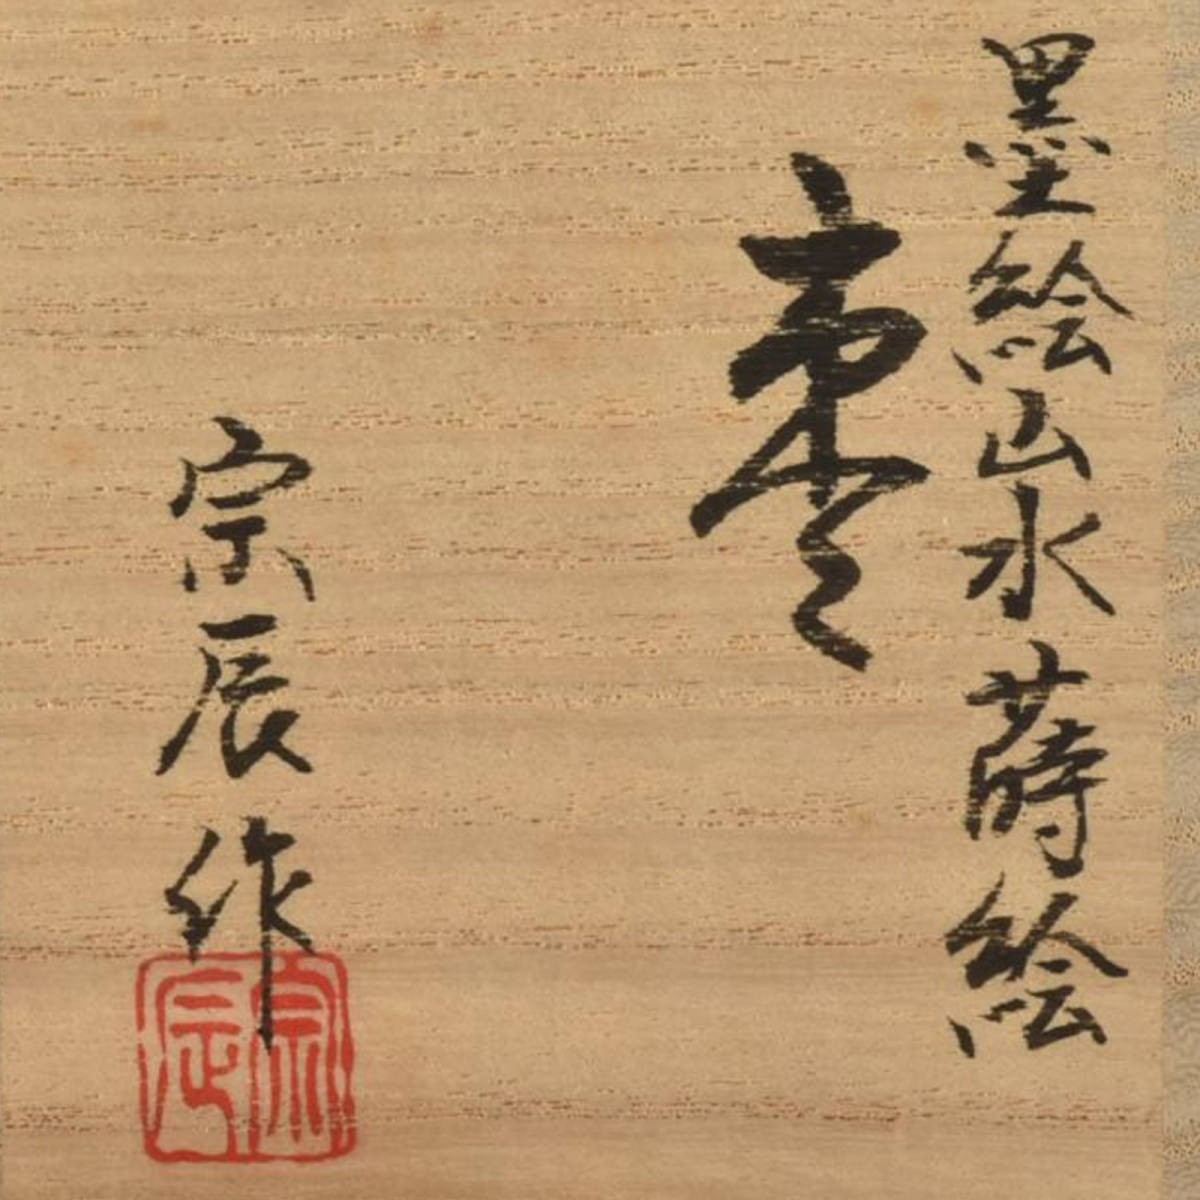 墨絵山水蒔絵
棗
宗辰作
宗辰